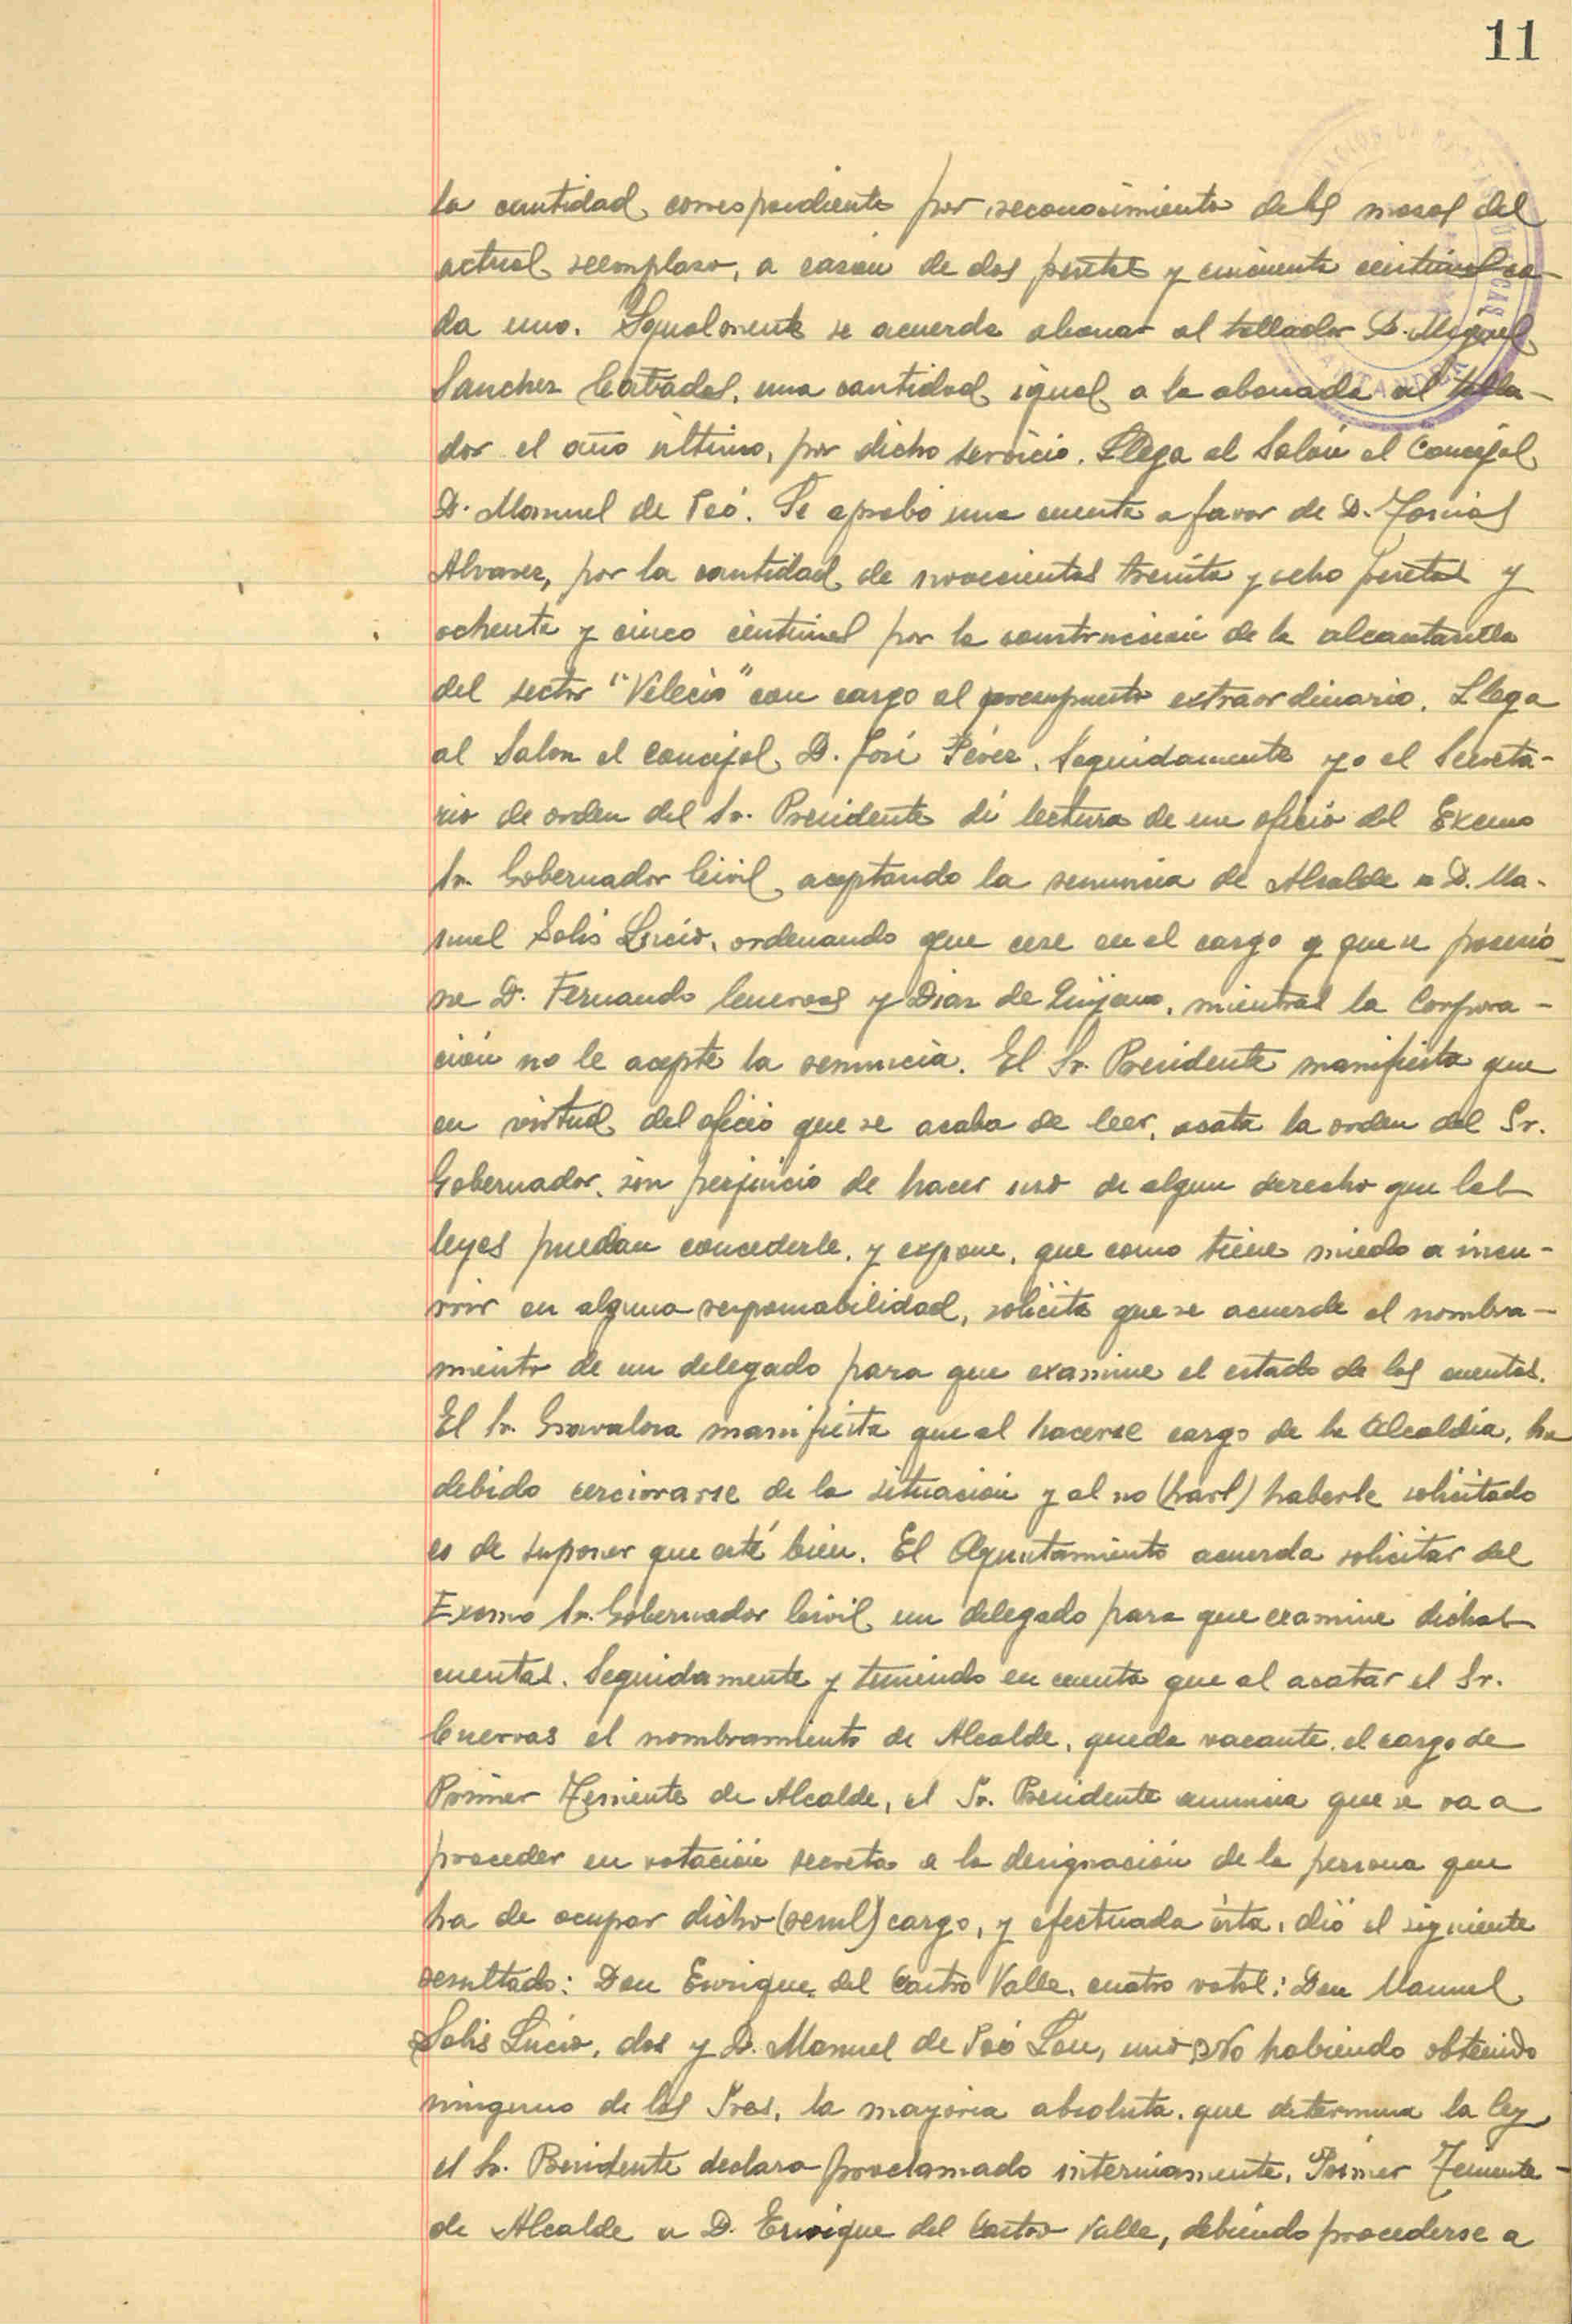 11
la cantidad correspondiente por reconocimiento de los mozos del
actual reemplazo, a razón de dos pesetas y cincuenta centimos ca-
da uno. Igualmente se acuerda abonar al tallador D. Miguel
Sanchez, una cantidad igual a la abonada al talla-
dor el año último, por dicho servicio. Llega al Salón el Concejal
D. Manuel de Peó. Se aprobó una cuenta a favor de D. Tomás
Alvarez, por la cantidad de novecientas treinta y ocho pesetas y
ochenta y cinco céntimos por la construcción de la alcantarilla
del sector "Velecio" con cargo al presupuesto extraordinario. Llega
al Salon el Concejal D. José Pérez. Seguidamente yo el Secreta-
rio de orden del Sr. Presidente dí lectura de un oficio del Excmo
Sr. Gobernador Civil aceptando la renuncia de Alcalde a D. Ma-
nuel Solis Lucio, ordenando que cese en el cargo y que se posesio-
ne D. Fernando Cuervas y Diaz de Quijano, mientras la Corpora-
ción no le acepte la renuncia. El Sr. Presidente manifiesta que
en virtud del oficio que se acaba de leer, acata la orden del Sr.
Gobernador, sin perjuicio de hacer uso de algun derecho que las
leyes puedan concederle, y expone, que como tiene miedo a incu-
rrir en alguna responsabilidad, solicita que se acuerde el nombra-
miento de un delegado para que examine el estado de las cuentas.
El Sr. manifiesta que al hacerse cargo de la Alcaldia, ha
debido cerciorarse de la situación y al no (harl) haberle solicitado
es de suponer que esté bien. El Ayuntamiento acuerda solicitar del
Excmo Sr. Gobernador Civil un delegado para que examine dichas
cuentas. Seguidamente y teniendo en cuenta que al acatar el Sr.
Cuervas el nombramiento de Alcalde, queda vacante el cargo de
Primer Teniente de Alcalde, el Sr. Presidente anuncia que se va a
proceder en votación secreta a la designación de la persona que
ha de ocupar dicho (resul) cargo, y efectuada ésta, dió el siguiente
resultado: Don Enrique del Castro Valle, cuatro votos; Don Manuel
Solis Lucio, dos y D. Manuel de Peó Lou, uno No habiendo obtenido
ninguno de los Sres. la mayoria absoluta que determina la ley,
el Sr. Presidente declara proclamado interinamente, Primer Teniente
de Alcalde a D. Enrique del Castro Valle, debiendo procederse a